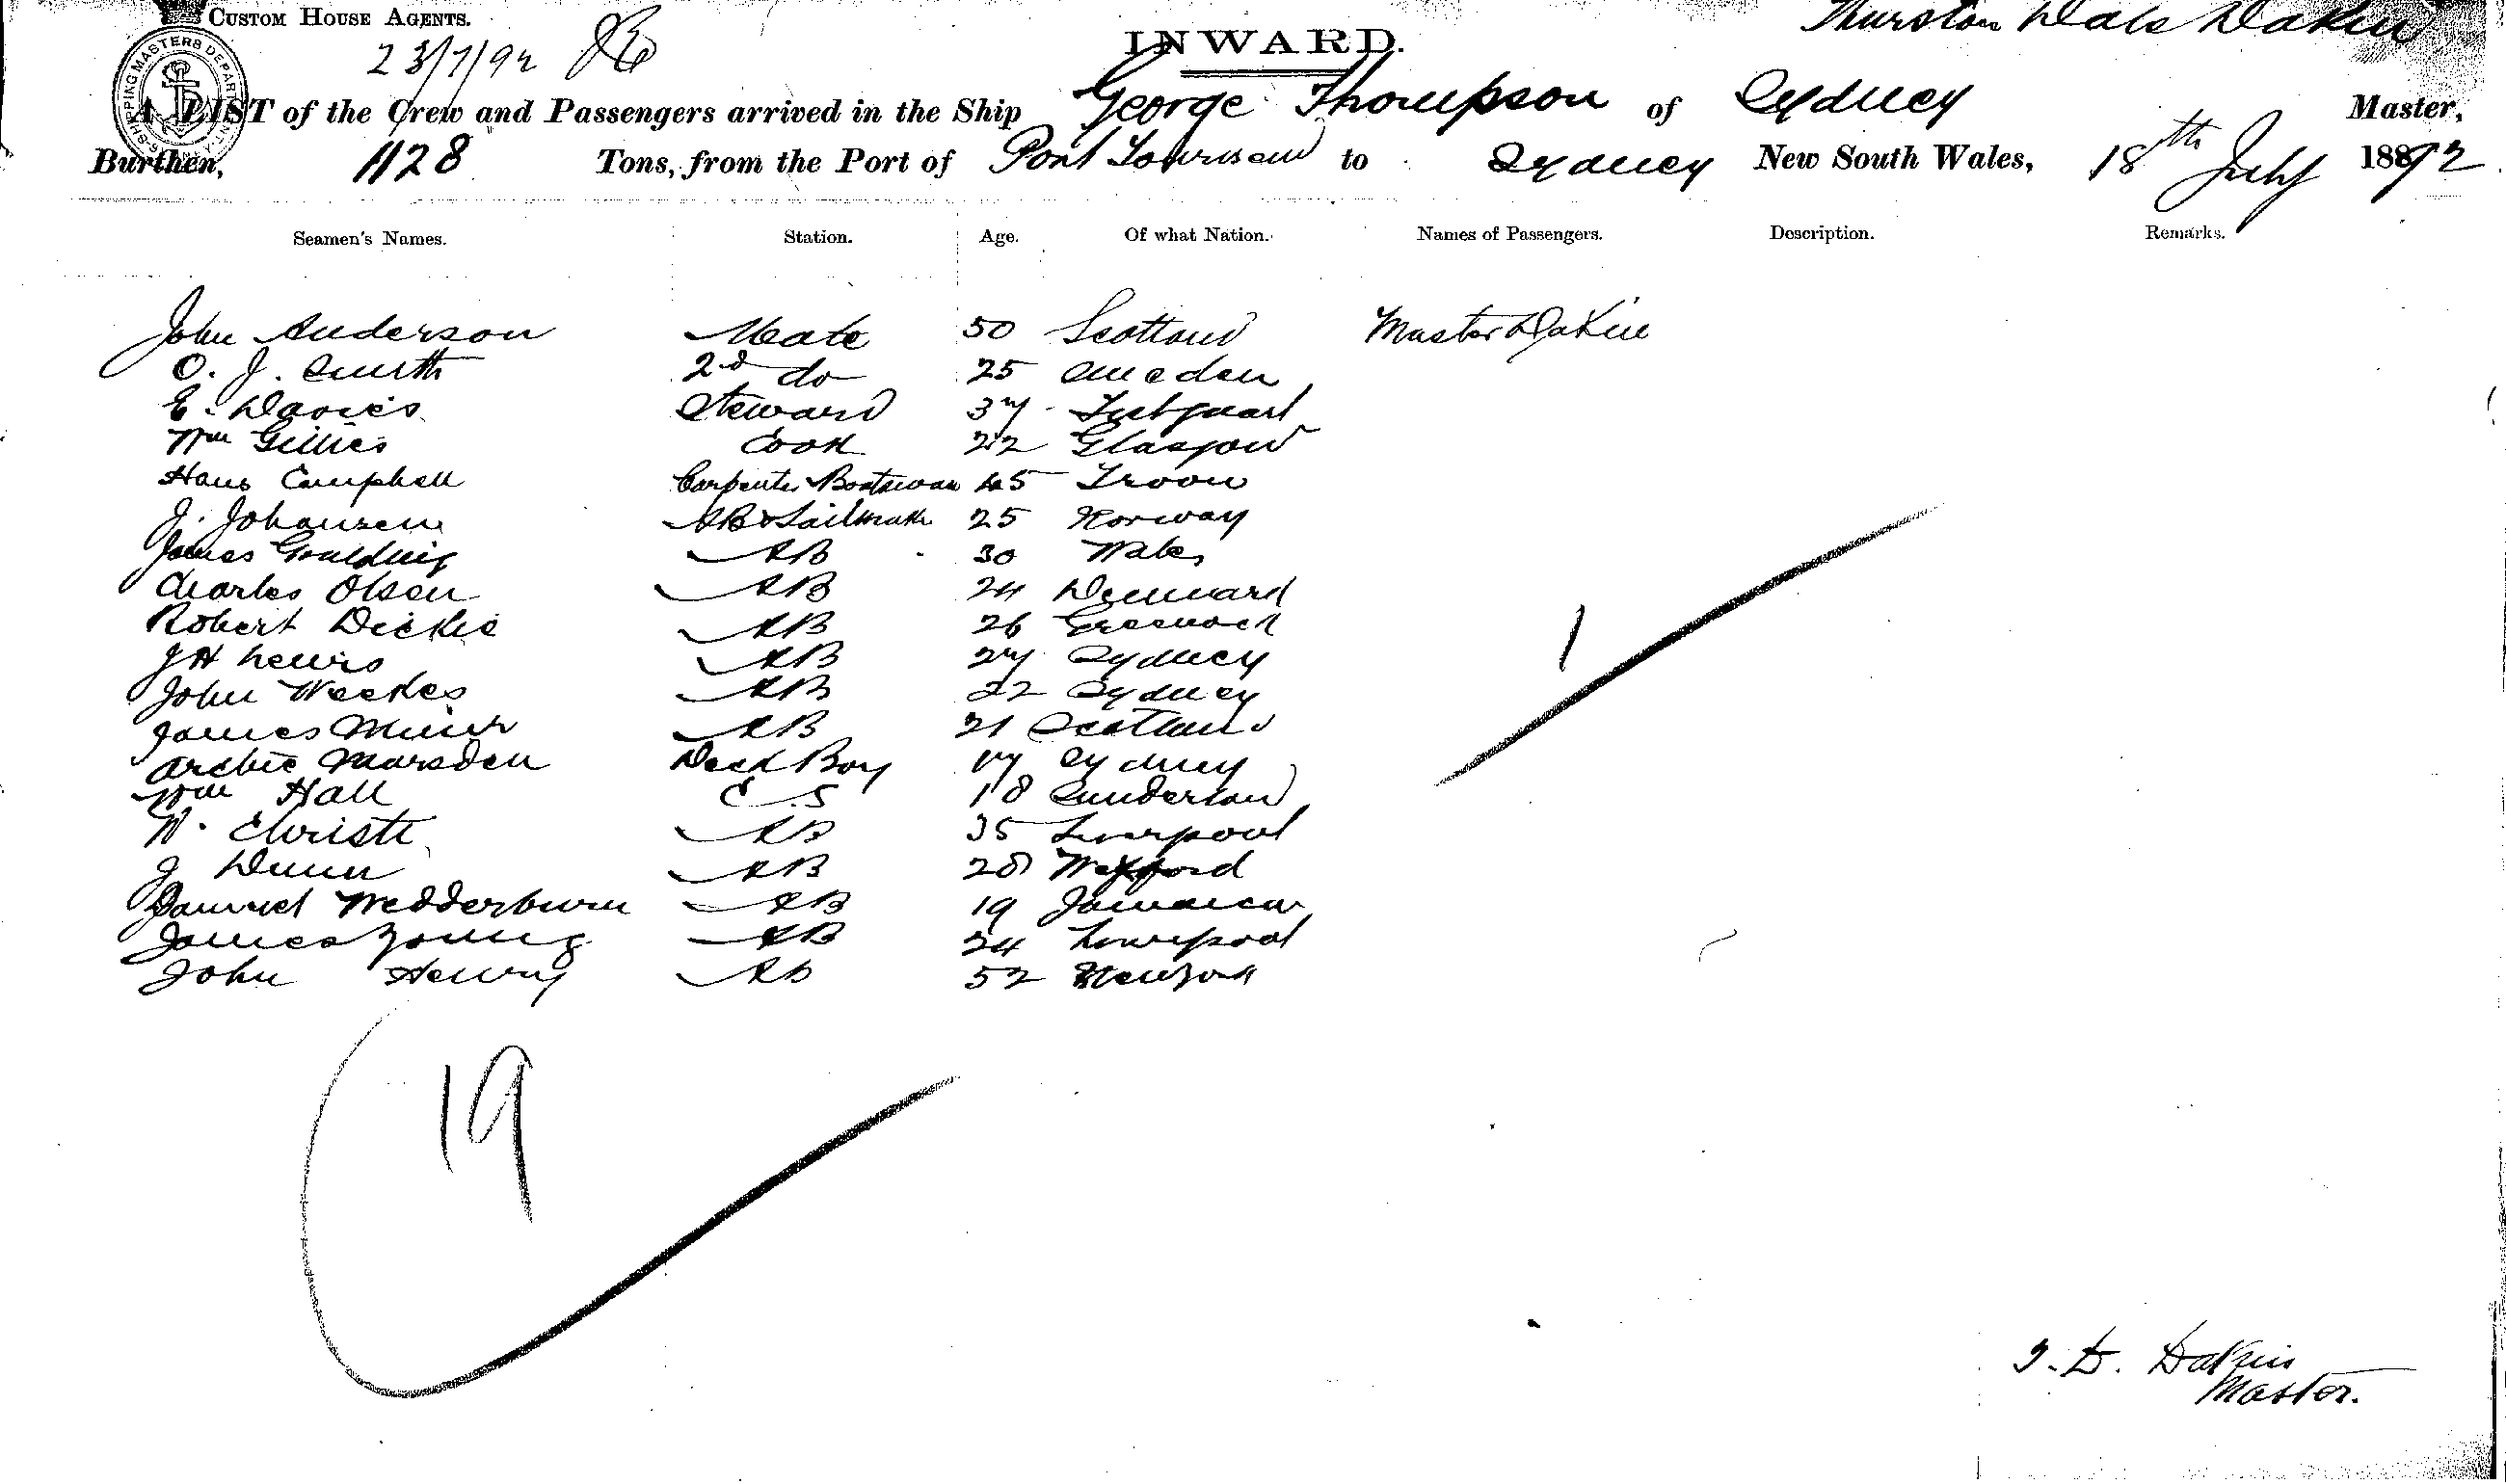 CUSTOM HOUSE AGENTS.
Thurston Dale Dakin
23/7/92
INWARD.
SHIPPING MASTERS DEPARTMENT
A LIST of the Crew and Passengers arrived in the Ship George Thompson of Sydney Master,
Burthen, 1128 Tons, from the Port of Port Townsend to Sydney New South Wales, 18th July 1892
Seamen's Names. Station. Age. Of what Nation. Names of Passengers. Description. Remarks.
John Anderson Mate 50 Scotland Master Dakin
O. J. Smith 2d do 25 Sweden
E. Davies Steward 37
Wm Gillies Cook 22 Glasgow
Hans Campbell Carpenter Boatswan 45 Troon
J. Johansen AB & Sailmaker 25 Norway
James Goulding AB 30 Wales
Charles Olsen AB 24 Denmark
Robert Dickie AB 26 Greenock
J H Lewis AB 27 Sydney
John Weekes AB 22 Sydney
James Muir AB 21 Scotland
Archie Marsden Deck Boy 17 Sydney
Wm Hall O.S 18 Sunderland
W. Christie AB 35 Liverpool
J Dunn AB 28 Wexford
Samuel Wedderburn AB 19 Jamaica
James Young AB 24 Liverpool
John Henry AB 52 New York
1
19
T. D. Dakin
Master.